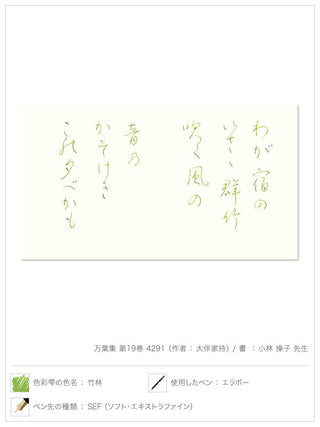 わが宿の
いさゝ群竹
吹く風の
音の
かそけき
この夕べかも
万葉集 第19巻 4291 (作者 : 大伴家持) / 書 : 小林 操子 先生
色彩雫の色名 : 竹林
使用したペン : エラボー
ペン先の種類 : SEF (ソフト・エキストラファイン)